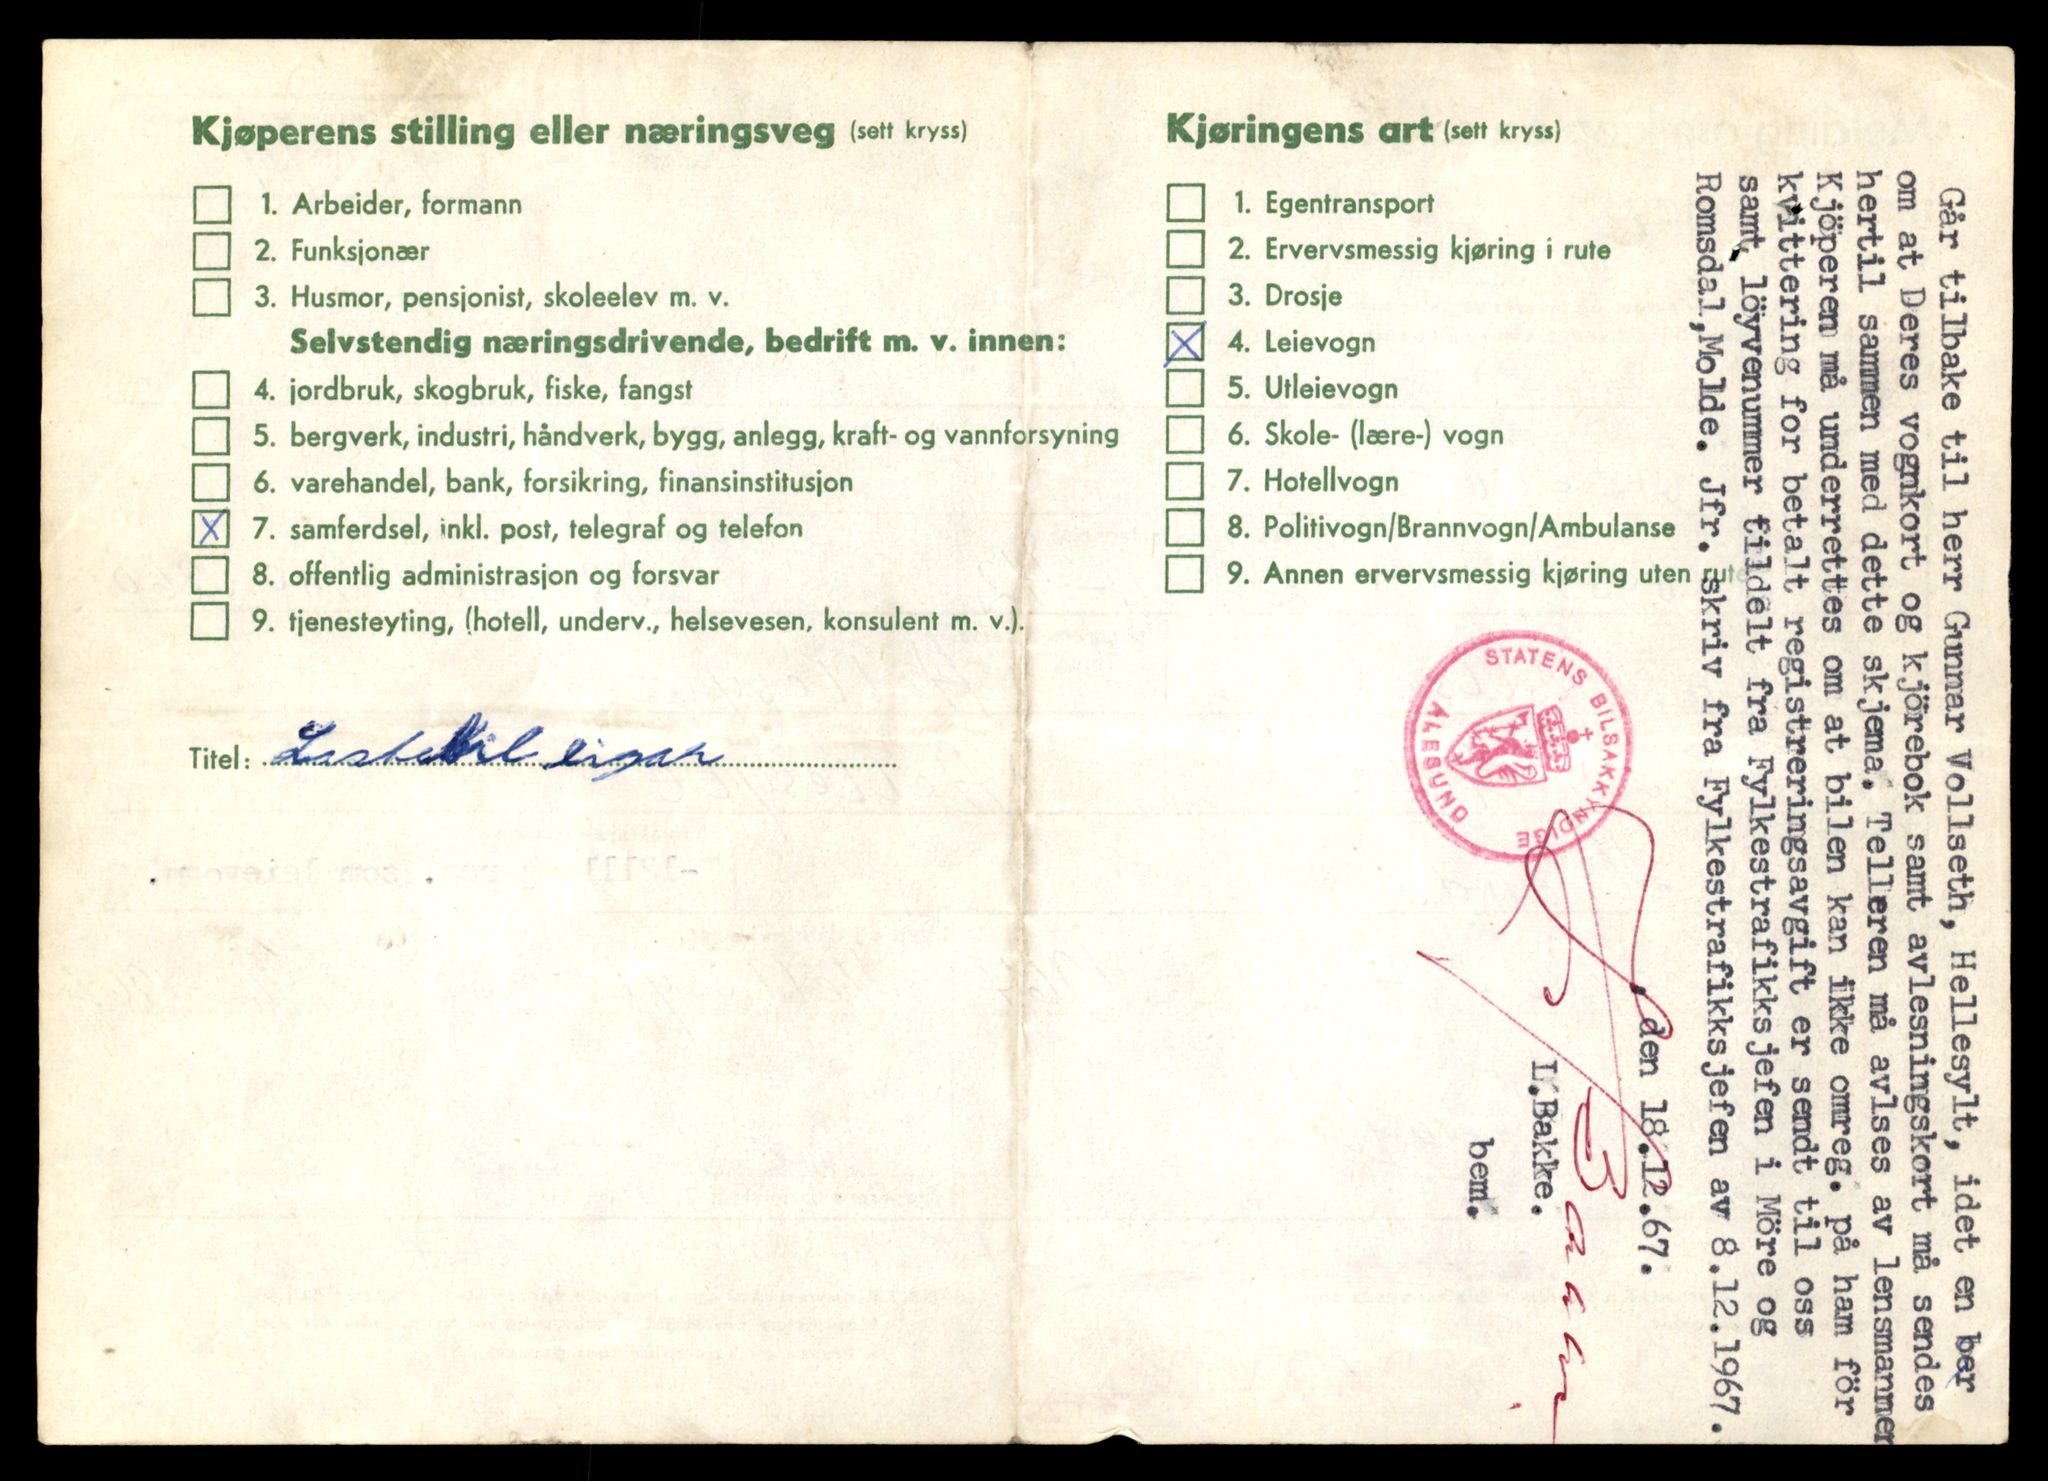 Kjøperens stilling eller næringsveg (sett kryss)
1. Arbeider, formann
2. Funksjonær
3. Husmor, pensjonist, skoleelev m. v.
Selvstendig næringsdrivende, bedrift m. v. innen:
4. jordbruk, skogbruk, fiske, fangst
5. bergverk, industri, håndverk, bygg, anlegg, kraft- og vannforsyning
6. varehandel, bank, forsikring, finansinstitusjon
X 7. samferdsel, inkl. post, telegraf og telefon
8. offentlig administrasjon og forsvar
9. tjenesteyting, (hotell, underv., helsevesen, konsulent m. v.).
Titel: Lastebil eigar
Kjøringens art (sett kryss)
1. Egentransport
2. Ervervsmessig kjøring i rute
3. Drosje
X 4. Leievogn
5. Utleievogn
6. Skole- (lære-) vogn
7. Hotellvogn
8. Politivogn/Brannvogn/Ambulanse
9. Annen ervervsmessig kjøring uten rute
STATENS BILSAKKYNDIGE
ÅLESUND
Går tilbake til herr Gunnar Vollseth, Hellesylt, idet en ber
om at Deres vognkort og kjörebok samt avlesningskort må sendes
hertil sammen med dette skjema. Telleren må avlses av lensmannen
Kjöperen må underrettes om at bilen kan ikke omreg. på ham för
kvittering for betalt registreringsavgift er sendt til oss
samt löyvenummer tildelt fra Fylkestrafikksjefen i Möre og
Romsdal,Molde. Jfr. skriv fra Fylkestrafikksjefen av 8.12.1967.
, den 18.12.67.
L.Bakke.
bem.